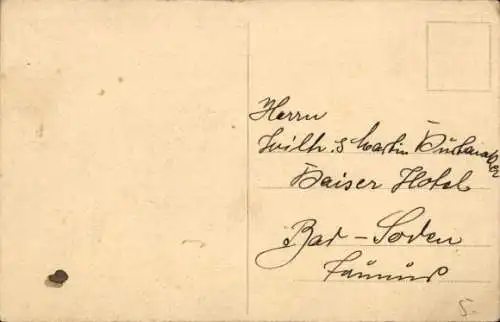 Herrn
Wilh. & Martin
Kaiser Hotel
Bad-Soden
Taunus
5.